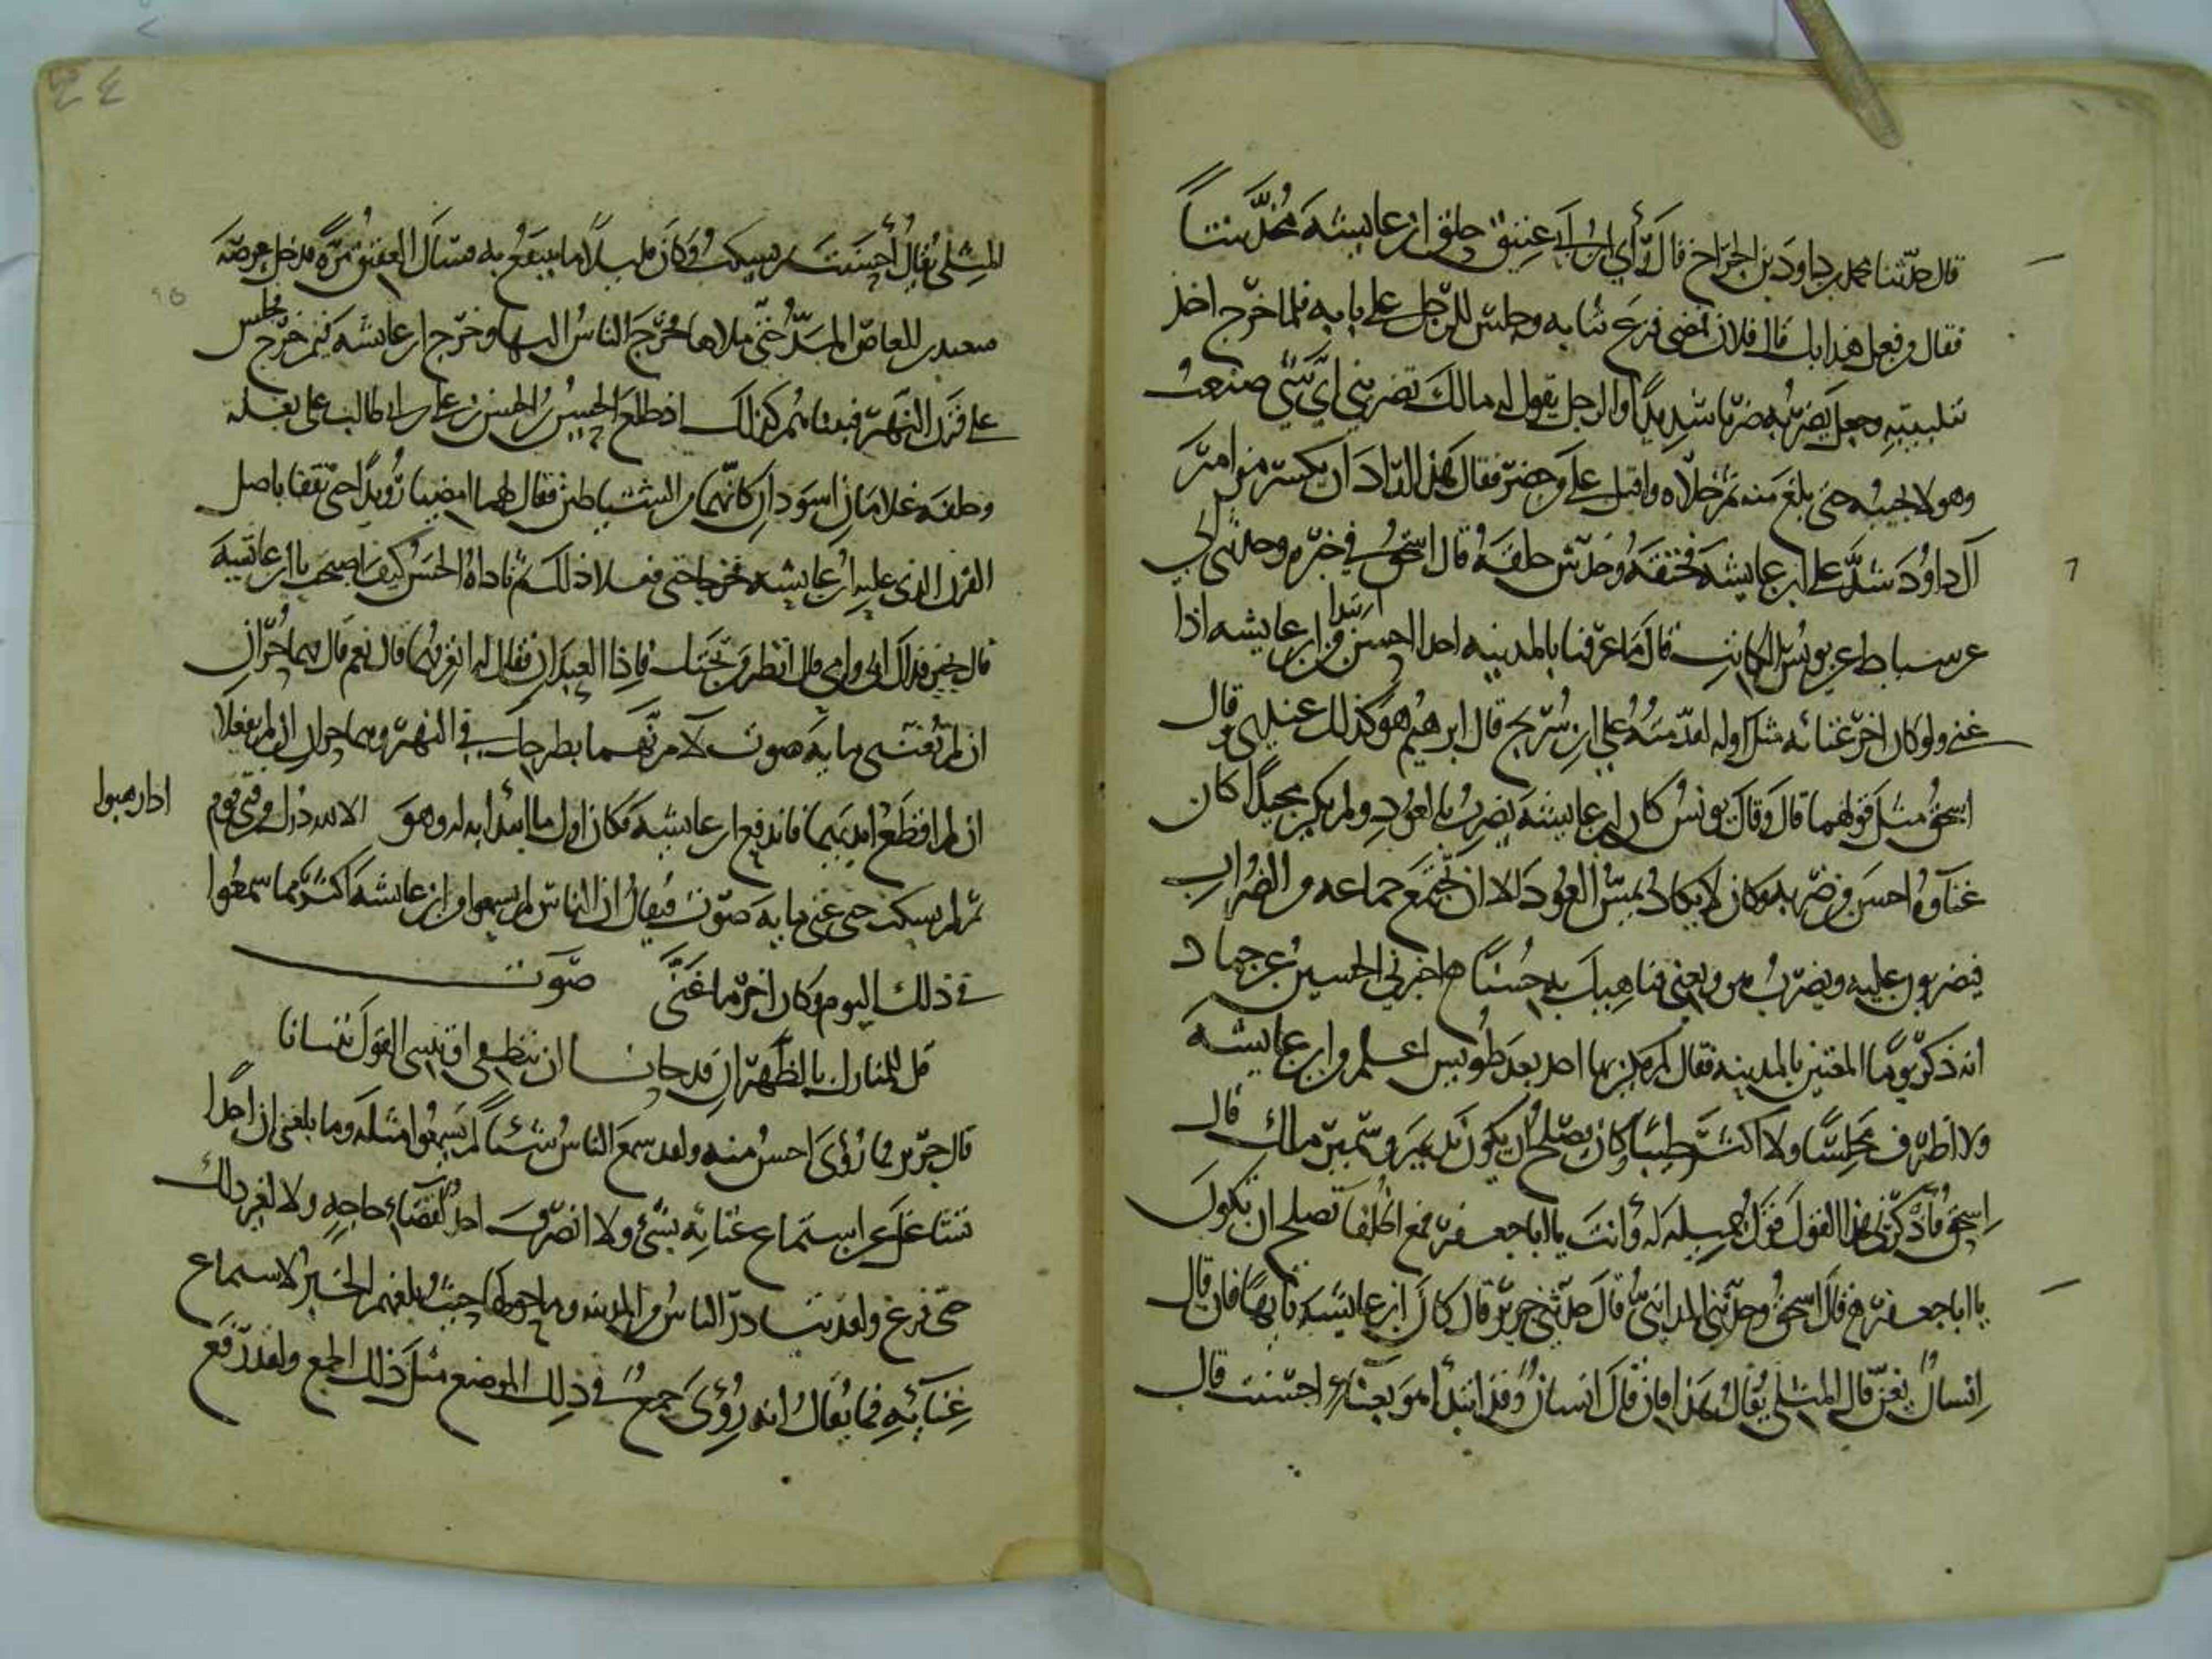 قال حدثنا محمد بن داود بن الجراح قال رأى ابن أبي عتيق حلق ابن عايشة مخدشا
فقال من فعل هذا بك قال فلان فمضى فنزع ثيابه وجلس للرجل على بابه فلما خرج اخذ
بتلبيبه وجعل يضربه ضربا شديدا والرجل يقول له مالك تضربني اي شي صنعت
وهو لا يجيبه حتى بلغ منه ثم خلاه واقبل على من حضر فقال هذا اراد ان يكسر مزامير
آل داود شد على ابن عايشة فخنقه وخدش حلقه قال اسحق في خبره وحدثني ابي
عن سياط عن يونس الكاتب قال ما عرفنا بالمدينه احدا احسن ابتدا من ابن عايشه اذا
غنى ولو كان اخر غنائه مثل اوله لقدمته على ابن سريج قال ابرهيم هو كذلك عندي وقال
اسحق مثل قولهما قال وقال يونس كان ابن عايشة يضرب بالعود ولم يكن مجيدا كان
غناوه احسن من ضربه وكان لا يكاد يمس العود الا ان تجتمع جماعه من الضراب
فيضربون عليه ويضرب هو ويغنى فناهيك به حسنا اخبرني الحسين عن حماد
انه ذكر يوما المغنين بالمدينه فقال لم يكن بها احد بعد طويس اعلم من ابن عايشة
ولا اظرف مجلسا ولا اكثر طيبا وكان يصلح ان يكون نديم وسمير ملك قال
اسحق فاذكرني هذا القول قول جميله له وانت يا ابا جعفر فمع الخلفا تصلح ان تكون
يا ابا جعفر قال اسحق وحدثني المدايني قال حدثني جرير قال كان ابن عايشة تايها فان قال
انسان تغن قال المثلي يقال هذا فان قال انسان وقد ابتدأ هو بغناء احسنت قال
المثلي يقال أحسنت ثم يسكت وكان قليلا ما ينتفع به فسال العقيق مرة فدخل عرصة
سعيد بن العاص الما حتى ملاها فخرج الناس اليها وخرج ابن عايشه فيمن خرج فجلس
على قرن النهر فبينا هم كذلك اذ طلع الحسن بن الحسن بن علي بن ابي طالب على بغله
وخلفه غلامان اسودان كانهما من الشياطين فقال لهما امضيا رويدا حتى تقفا باصل
القرن الذي عليه ابن عايشه فخرجا حتى فعلا ذلك ثم ناداه الحسن كيف اصبحت يا ابن عايشة
قال بخير فداك ابي وامي قال انظر من تحتك فاذا العبدان فقال له اتعرفهما قال نعم قال فهما حران
ان لم تغنني مايه صوت لآمرنهما بطرحك في النهر وهما حران ان لم يفعلا
ان لم اقطع ايديهما فاندفع ابن عايشة فكان اول ما ابتدا به له وهو الا لله درك من فتى قوم
اذا رهبوا
ثم لم يسكت حتى غنى مايه صوت فيقال ان الناس لم يسمعوا من ابن عايشة اكثر مما سمعوا
في ذلك اليوم وكان اخر ما غنى صوت
قل للمنازل بالظهران قد حانا ان تنطقي فتبيني القول تبيانا
قال جرير فما رؤى احسن منه ولقد سمع الناس شيئا لم يسمعوا مثله وما بلغني ان احدا
تشاغل عن استماع غنايه بشيء ولا انصرف احد لقضاء حاجه ولا لغير ذلك
حتى فرغ ولقد تبادر الناس من المدينه وما حولها حيث بلغهم الخبر لاستماع
غنائه فما يقال انه رؤى جمع في ذلك الموضع مثل ذلك الجمع ولقد رفع